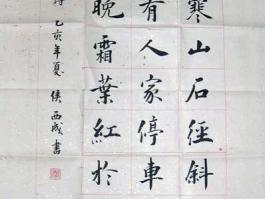 寒山石徑斜
有人家停車
晚霜葉紅於
乙亥年夏 侯西成書